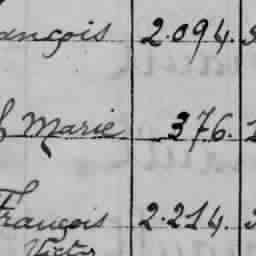 ançois 2.094.
Marie 376.
François 2.214.
Victor